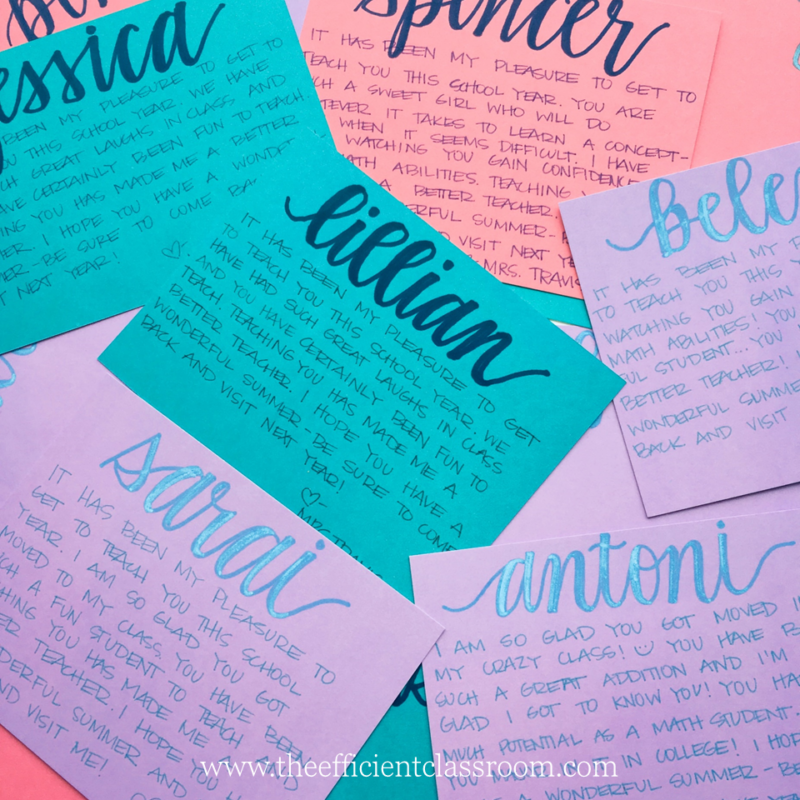 essica
BEEN MY PLEASURE TO GET TO
YOU THIS SCHOOL YEAR. WE HAVE
GREAT LAUGHS IN CLASS AND
HAVE CERTAINLY BEEN FUN TO TEACH
YOU HAS MADE ME A BETTER
I HOPE YOU HAVE A
BE SURE TO COME
NEXT YEAR!
spencer
IT HAS BEEN MY PLEASURE TO GET TO
TEACH YOU THIS SCHOOL YEAR. YOU ARE
A SWEET GIRL WHO WILL DO
IT TAKES TO LEARN A CONCEPT-
WHEN IT SEEMS DIFFICULT. I HAVE
WATCHING YOU GAIN CONFIDENCE
MATH ABILITIES. TEACHING
A BETTER TEACHER.
SUMMER-
AND VISIT NEXT
MRS. TRAVIS
lillian
IT HAS BEEN MY PLEASURE TO GET
TO TEACH YOU THIS SCHOOL YEAR. WE
HAVE HAD SUCH GREAT LAUGHS IN CLASS
AND YOU HAVE CERTAINLY BEEN FUN TO
TEACH. TEACHING YOU HAS MADE ME A
BETTER TEACHER. I HOPE YOU HAVE A
WONDERFUL SUMMER- BE SURE TO COME
BACK AND VISIT NEXT YEAR!
bele
IT HAS BEEN MY
TO TEACH YOU THIS
WATCHING YOU GAIN
MATH ABILITIES! YOU
STUDENT...YOU
BETTER TEACHER!
WONDERFUL
BACK AND VISIT
sarai
IT HAS BEEN MY PLEASURE TO
GET TO TEACH YOU THIS SCHOOL
YEAR. I AM SO GLAD YOU GOT
MOVED TO MY CLASS. YOU HAVE BEEN
A FUN STUDENT TO TEACH
YOU HAS MADE ME
TEACHER. I HOPE YOU
SUMMER AND
AND VISIT ME!
antoni
I AM SO GLAD YOU GOT MOVED
MY CRAZY CLASS! YOU HAVE
SUCH A GREAT ADDITION AND I'M
GLAD I GOT TO KNOW YOU! YOU
MUCH POTENTIAL AS A MATH STUDENT.
IN COLLEGE! I
A WONDERFUL SUMMER-
AND VISIT NEXT
www.theefficientclassroom.com